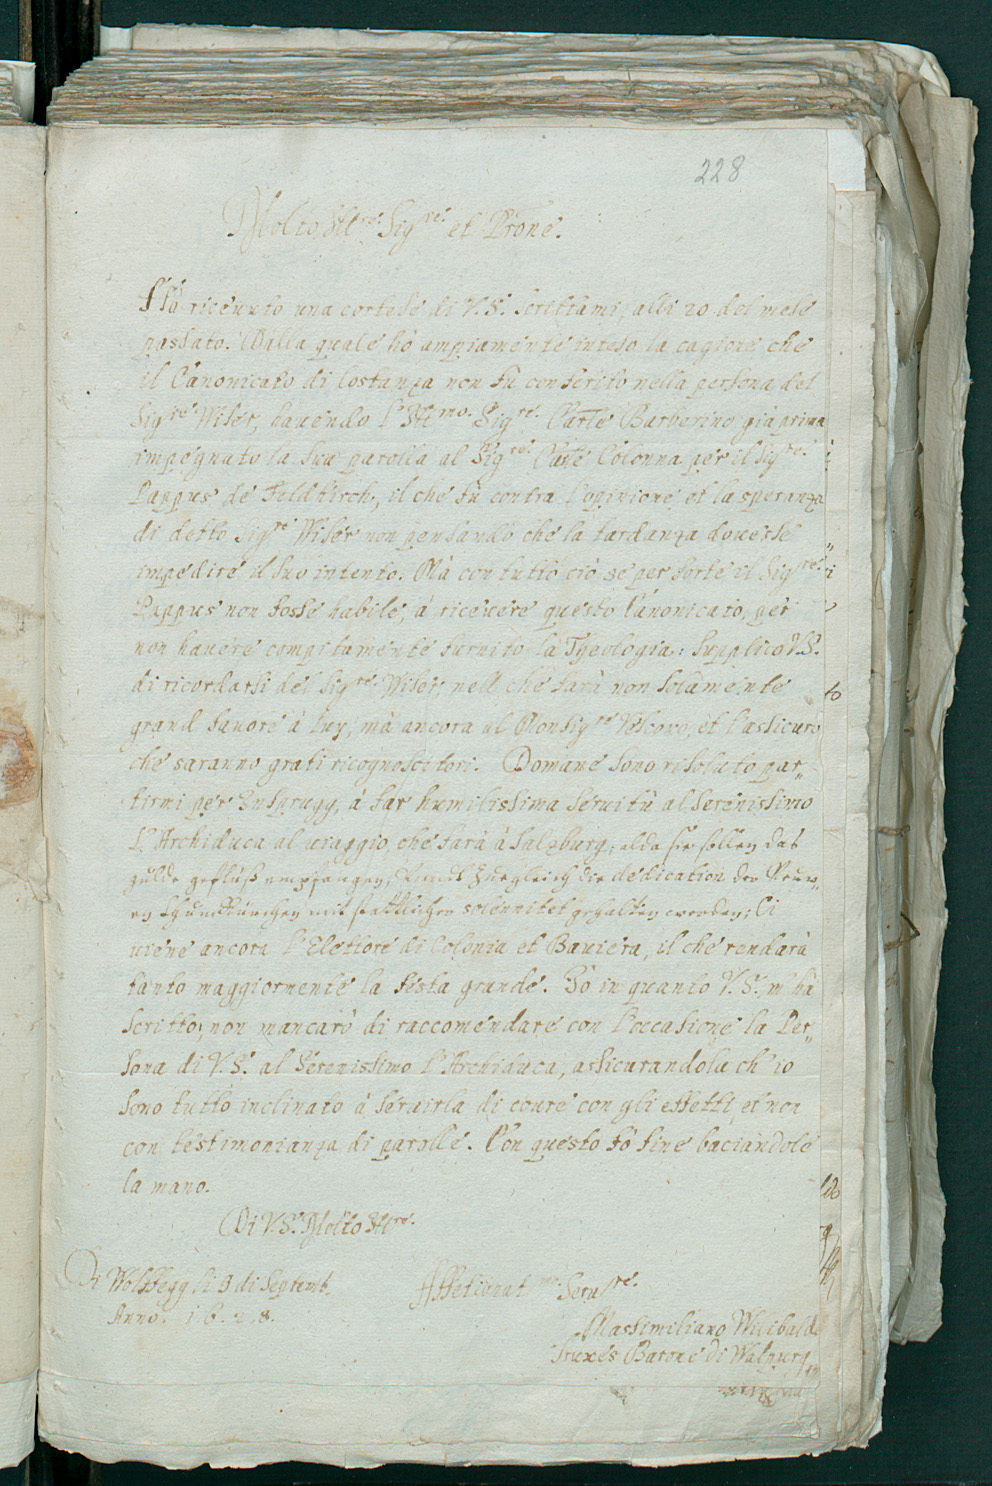 228
Molto Ill.re Sig.re et Prone.
Hò riceuuto una cortese di V.S. scrittami, alli 20 del mese
passato. Dalla quale hò ampiamente inteso la cagione che
il Canonicato di Costanza non fù conferito nella persona del
Sig.re Wiser, hauendo l'Ill.mo Sig.re Carle Barberino già prima
impegnato la sua parolla al Sig.re Carle Colonna per il Sig.re
Pappus de Feldkirch, il che fù contra l'opinione et la speranza
di detto Sig.re Wiser non pensando che la tardanza douesse
impedire il suo intento. Mà con tutto ciò se per sorte il Sig.re
Pappus non fosse habile, à riceuere questo Canonicato, per
non hauere compitamente furnito la Theologia: supplico V.S.
di ricordarsi del Sig.re Wiser, nell che farà non solamente
grand fauore à luy, mà ancora al Monsig.re Vescovo, et l'assicuro
che saranno grati ricognoscitori. Domane sono risoluto par„
tirmi per Insprugg, à far humilissima seruitù al Serenissimo
L'Archiduca al uiaggio che farà à Salzburg, alda sie sollen das
gulde gefluß empfangen, vnnd zuegleich die dedication der Neuw„
en Thumbkürchen mit stattlicher solennitet gehalten werden; Ci
uiene ancora l'Elettore di Colonia et Bauiera, il che rendarà
tanto maggiormente la festa grande. Jò in quanto V.S. m'hà
scritto, non mancarò di raccomendare con l'occasione la Per„
sona di V.S. al Serenissimo l'Archiduca, assicurandola ch'io
sono tutto inclinato à seruirla di couré con gli effetti, et non
con testimonianza di parolle. Con questo fò fine baciandole
la mano.
Di V.S. Molto Ill.re
Di Wolffegg li 3 di Septemb. Affetionat.mo Seru.re
Anno. 1628. Massimiliano Wilibaldo
Truxes Barone di Walpurg